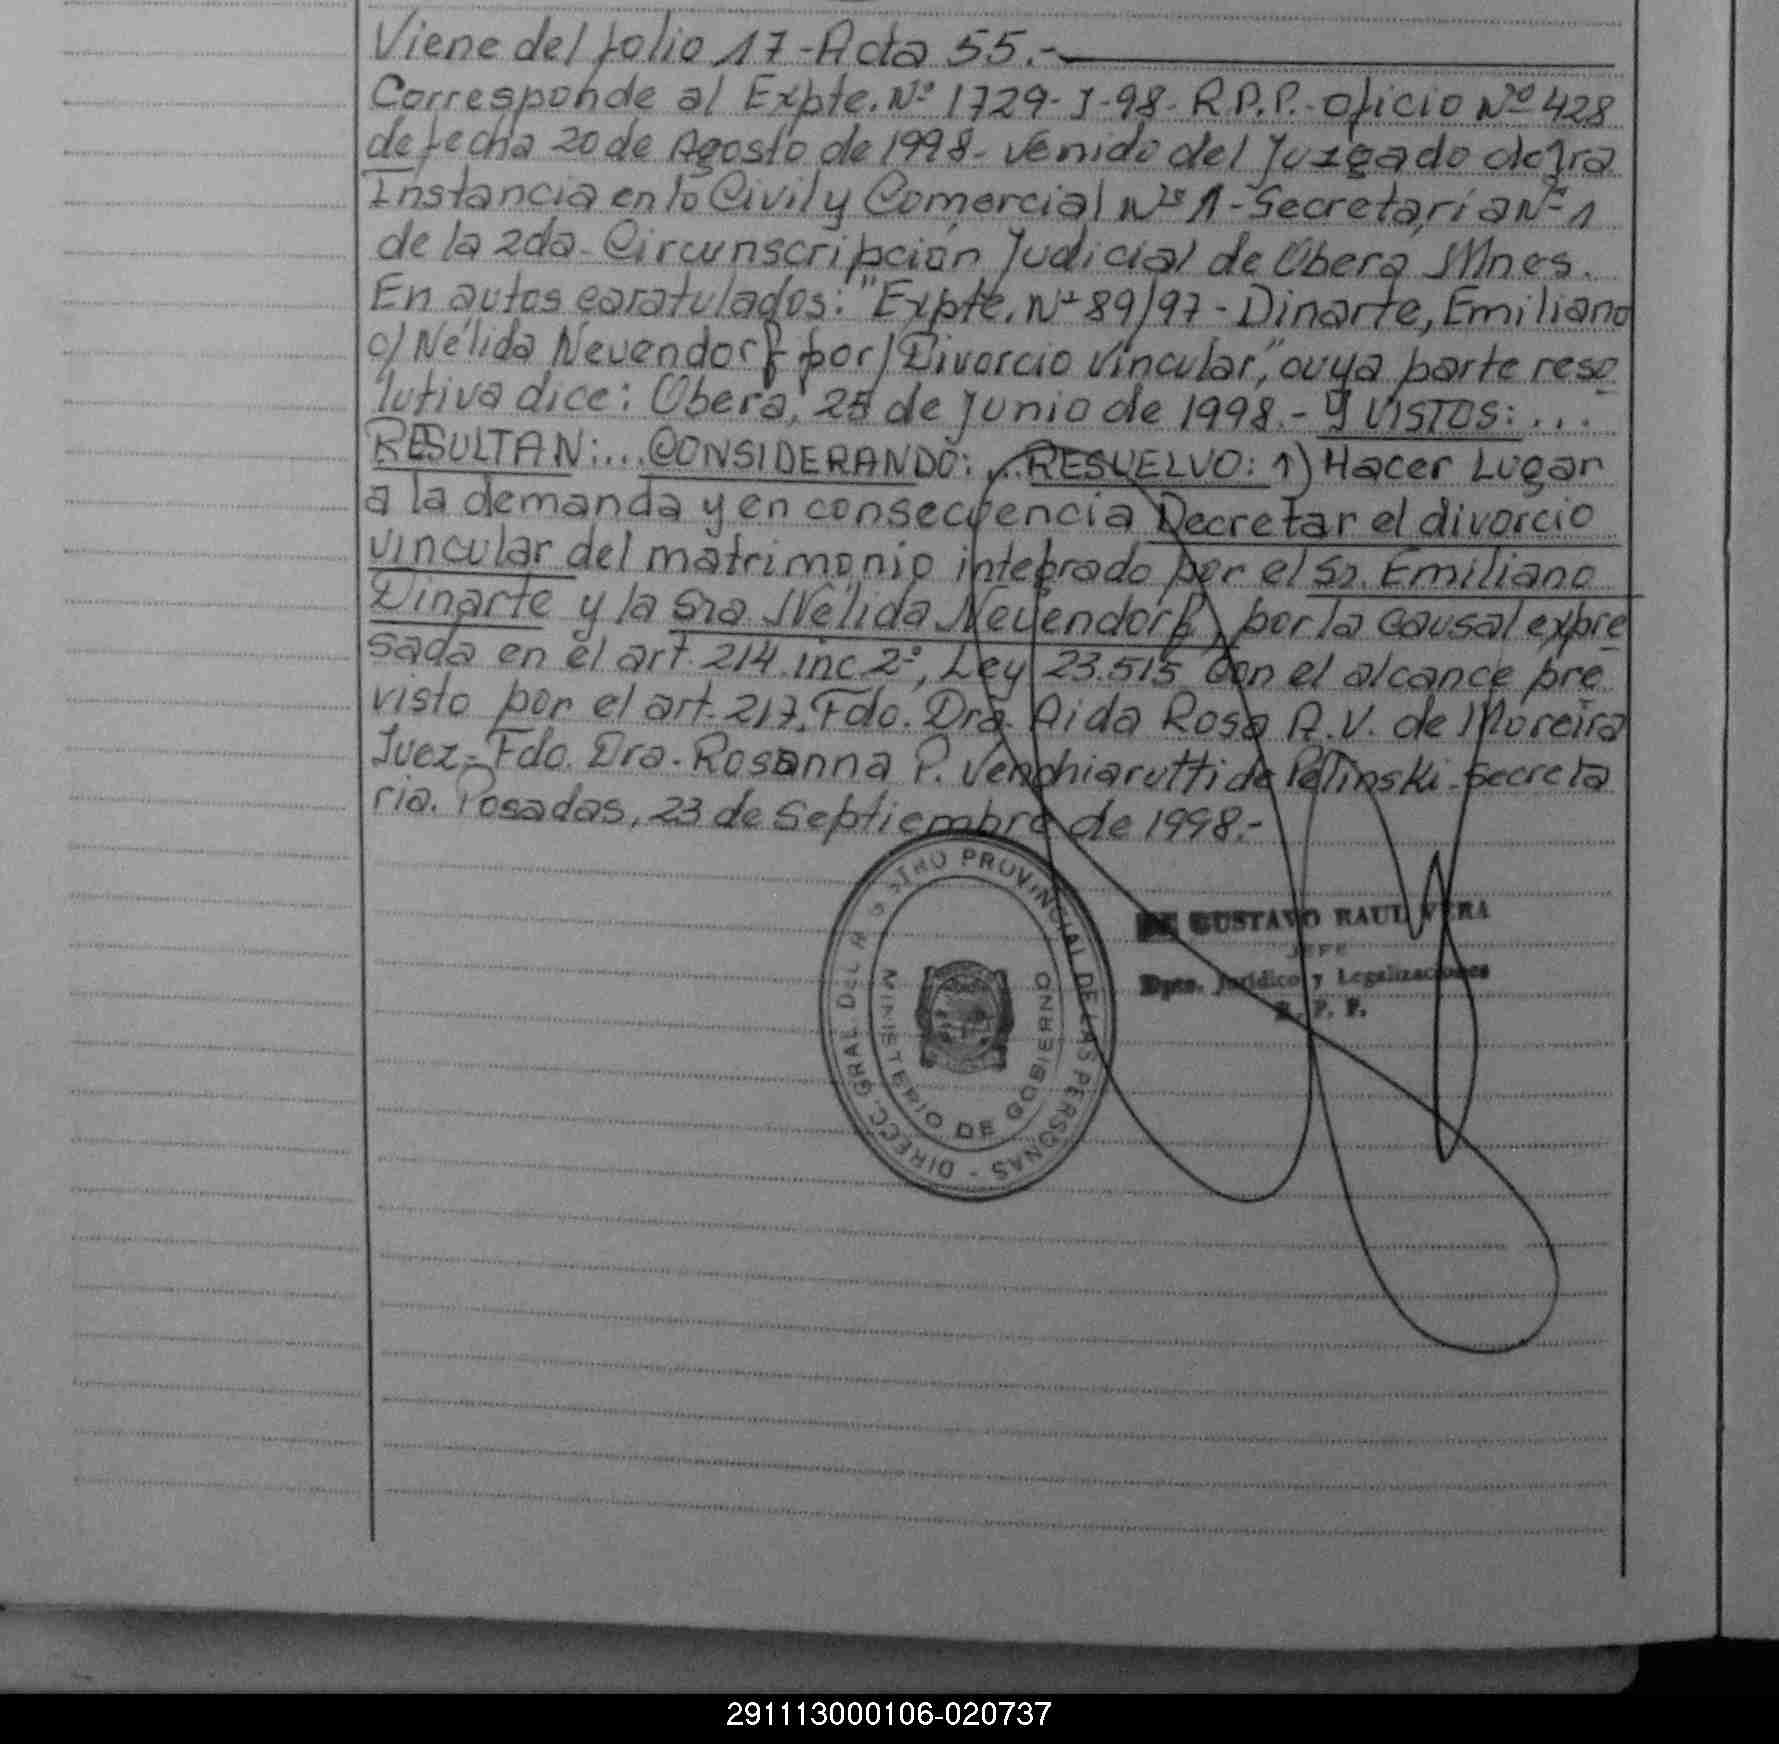 Viene del folio 17 - Acta 55.-
Corresponde al Expte. Nº 1729-J-98- R.P.P.- oficio Nº 428
de fecha 20 de Agosto de 1998- venido del Juzgado de 1ra
Instancia en lo Civil y Comercial Nº 1 - Secretaría Nº 1
de la 2da- Circunscripción Judicial de Oberá, Mnes.
En autos caratulados: "Expte. Nº 89/97 - Dinarte, Emiliano
c/ Nélida Neuendorf por/ Divorcio Vincular," cuya parte reso
lutiva dice: Oberá, 25 de Junio de 1998.- Y VISTOS: ...
RESULTAN: ... CONSIDERANDO: ... RESUELVO: 1) Hacer Lugar
a la demanda y en consecuencia Decretar el divorcio
vincular del matrimonio integrado por el Sr. Emiliano
Dinarte y la Sra Nélida Neuendorf, por la causal expre
sada en el art. 214 inc 2º, Ley 23.515 con el alcance pre
visto por el art. 217. Fdo. Dra. Aida Rosa A.V. de Moreira
Juez- Fdo. Dra. Rosanna P. Venchiarutti de Pelinski- Secreta
ria. Posadas, 23 de Septiembre de 1998.-
DIRECC. GRAL. DEL R G STRO PROVINCIAL DE LAS PERSONAS -
MINISTERIO DE GOBIERNO
GUSTAVO RAUL VERA
JEFE
Dpto. Jurídico y Legalizaciones
R. P. P.
291113000106-020737